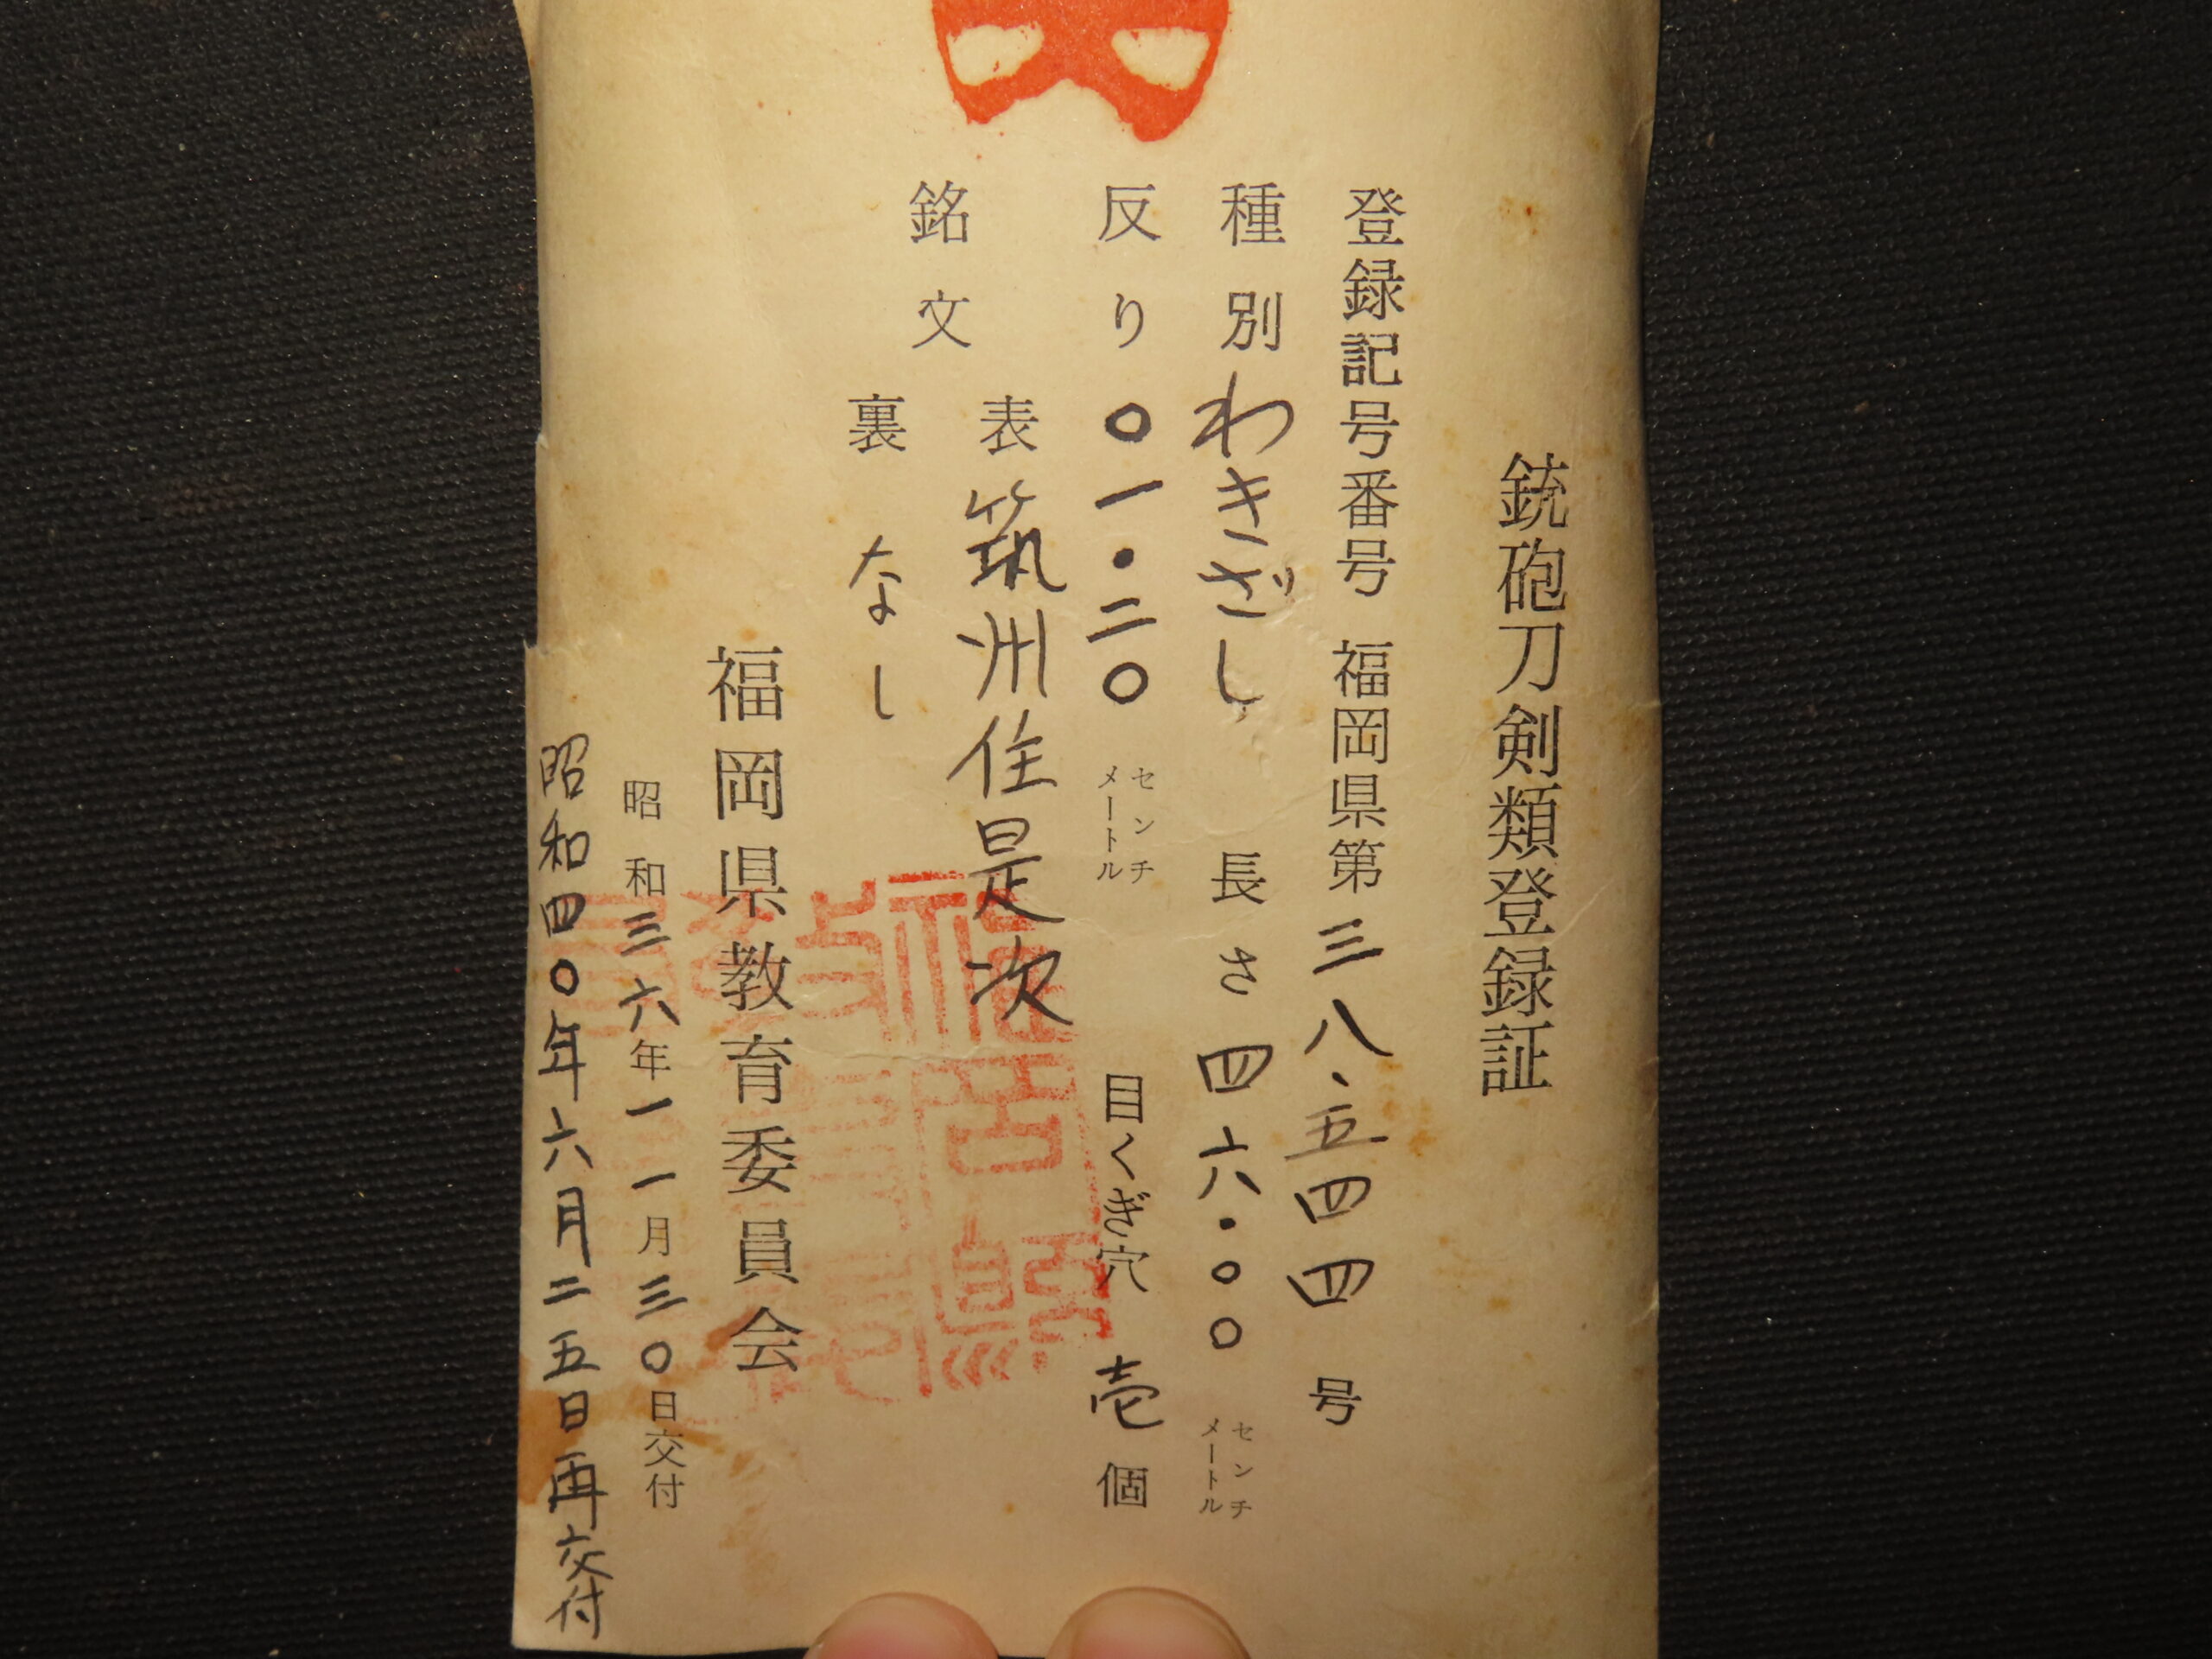 銃砲刀剣類登録証
登録記号番号 福岡県第三八、五四四号
種別わきざし 長さ四六・〇〇センチメートル
反り〇一・二〇センチメートル 目くぎ穴 壱個
銘文
表 筑州住是次
裏 なし
福岡県教育委員会
昭和三六年一一月三〇日交付
昭和四〇年六月二五日再交付